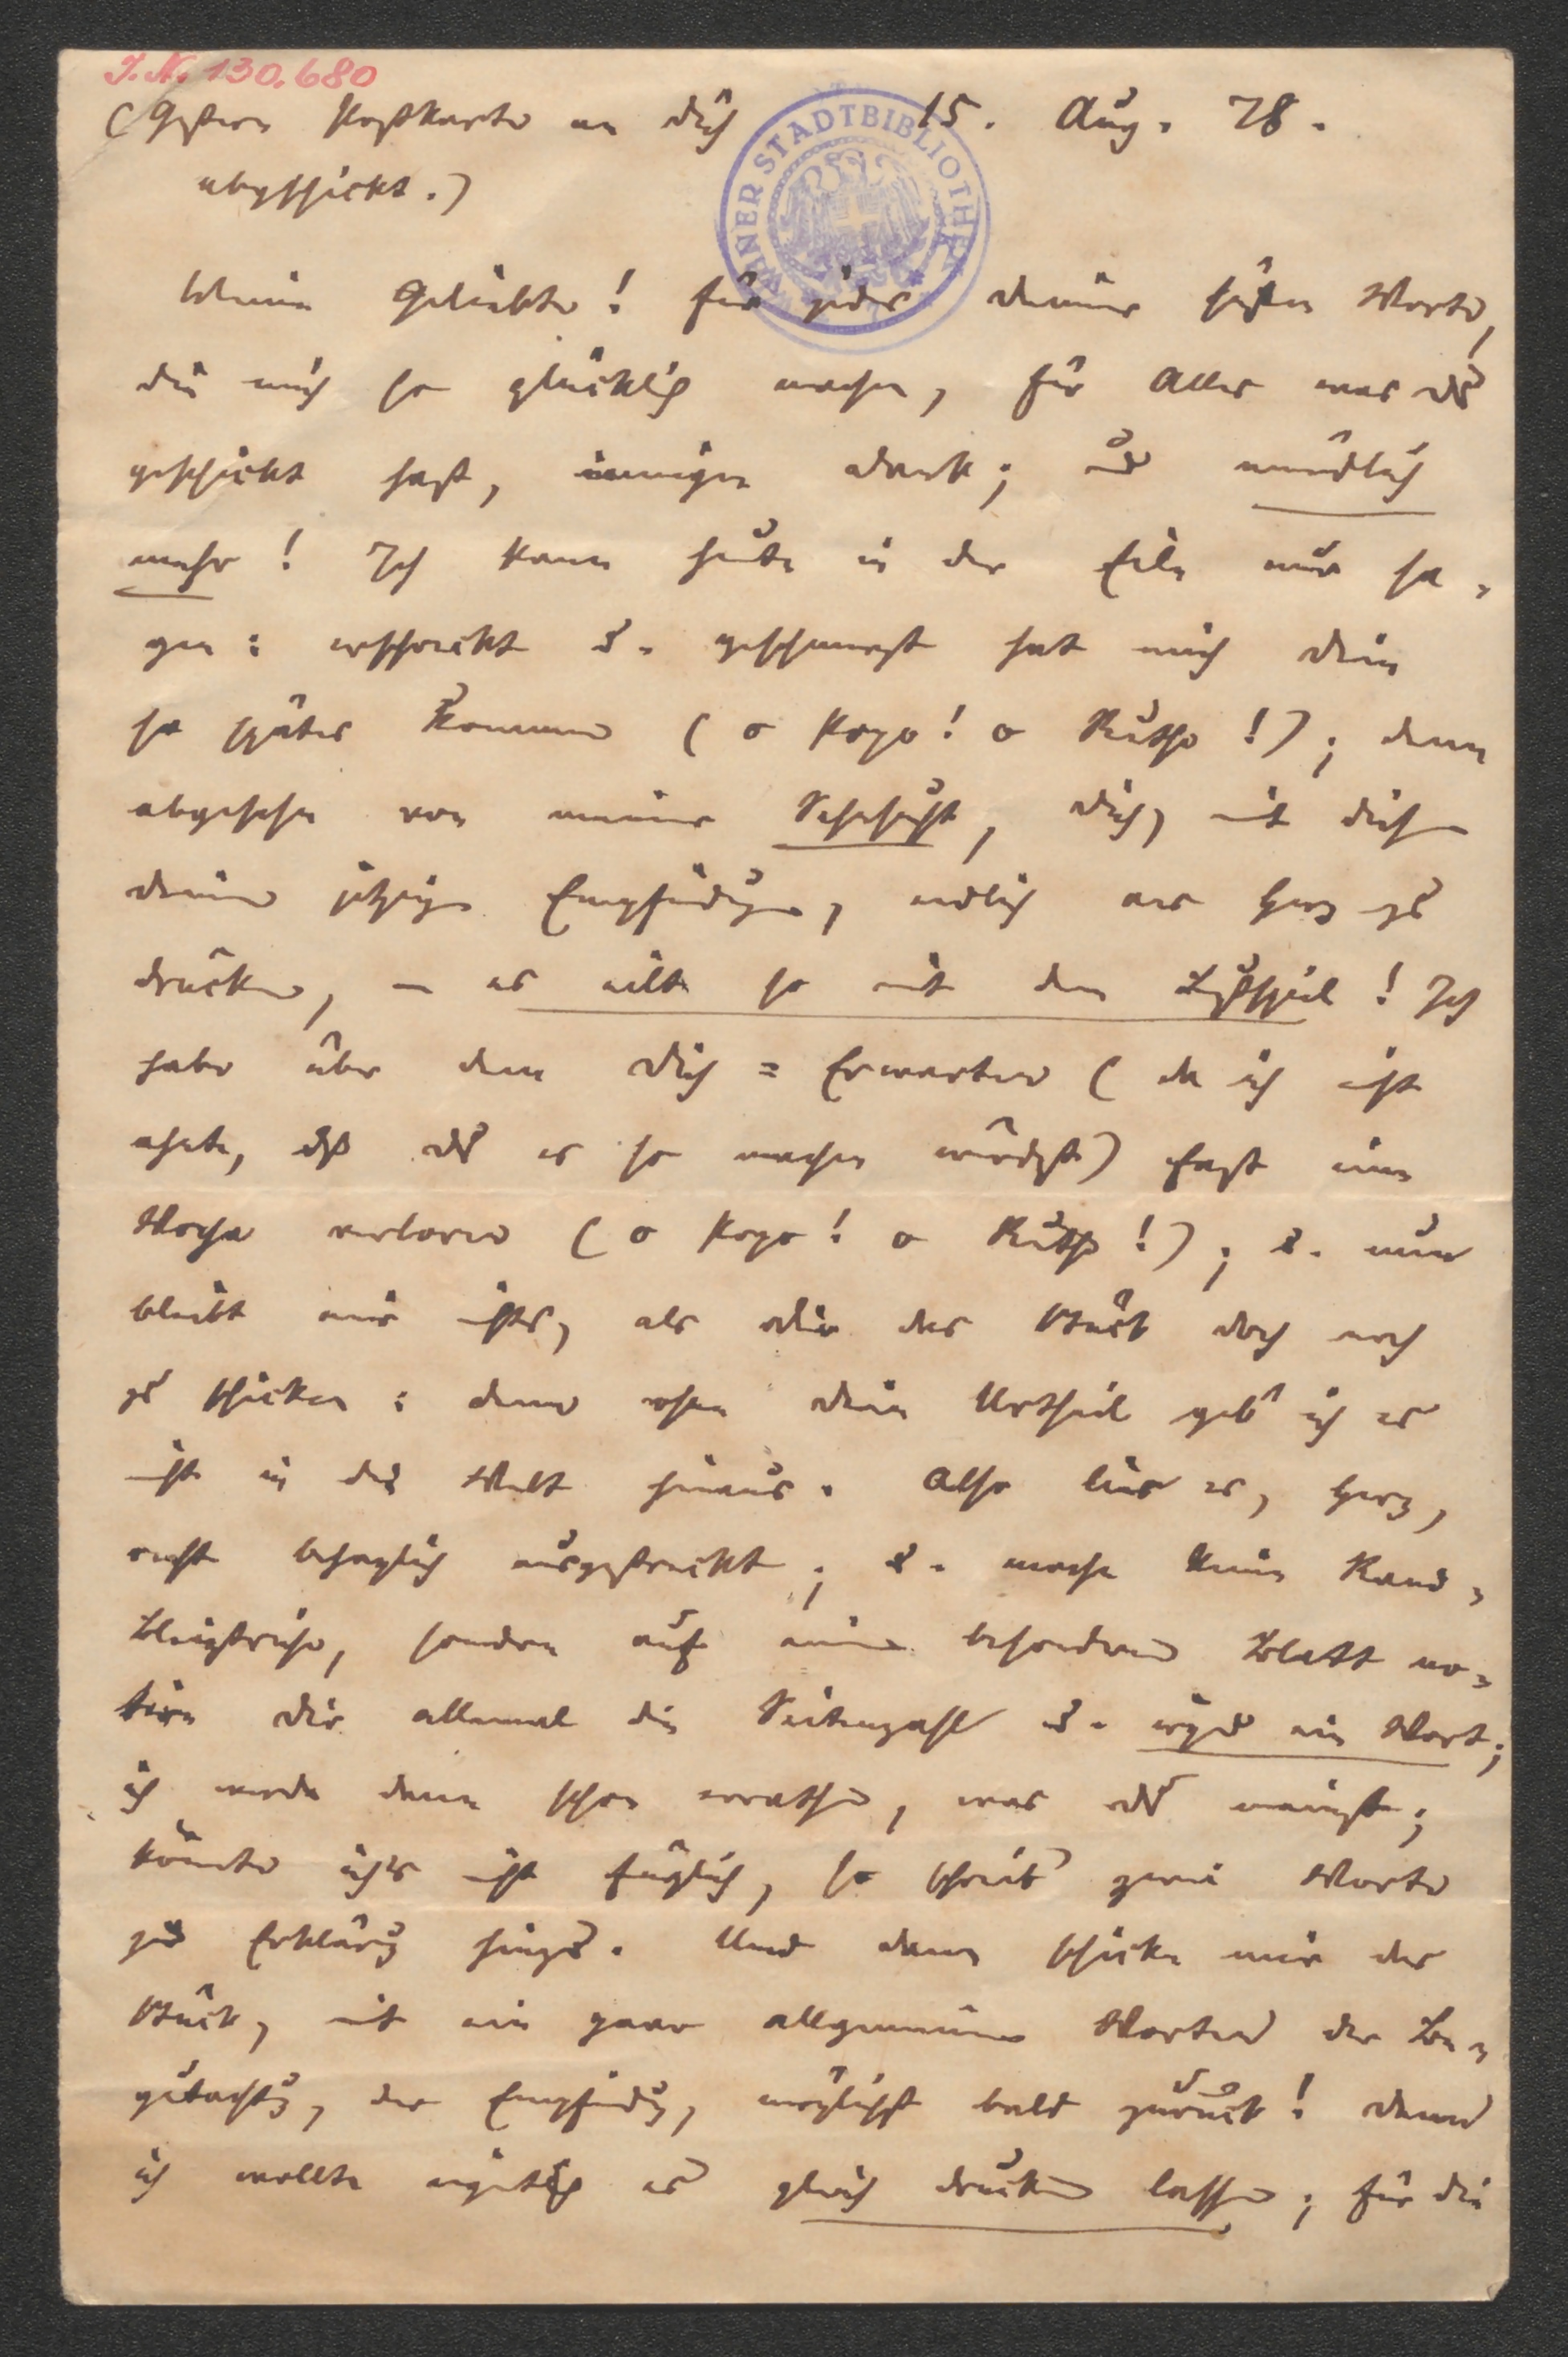 I.N. 130.680
(Gestern Postkarte an dich 15. Aug. 78.
abgeschickt.)
WIENER STADTBIBLIOTHEK
Meine Geliebte! für jedes deiner süßen Worte,
die mich so glücklich machen, für Alles was du
geschickt hast, innigen Dank; und mündlich
mehr! Ich kann heute in der Eile nur sa-
gen: erschreckt u. geschmerzt hat mich dein
so spätes Kommen ( o ! o !); denn
abgesehen von meiner Sehnsucht, dich, mit diesen
deinen jetzigen Empfindungen, endlich ans Herz zu
drücken, – es eilt so mit dem Lustspiel! Ich
habe über dem Dich-Erwarten (da ich nicht
ahnte, daß du es so machen würdest) fast eine
Woche verloren ( o ! o !); u. nun
bleibt mir nichts, als dir das Stück doch noch
zu schicken: denn ohne dein Urtheil geb' ich es
nicht in die Welt hinaus. Also lies es, Herz,
recht behaglich ausgestreckt; u. mache keine Rand-
Bleistriche, sondern auf einem besondren Blatt no-
tire dir allemal die Seitenzahl u. irgend ein Wort;
ich werde dann schon errathen, was du meinst;
könnte ich's nicht füglich, so schreib' zwei Worte
zur Erklärung hinzu. Und dann schicke mir das
Stück, mit ein paar allgemeinen Worten der Be-
gutachtung, der Empfindung, möglichst bald zurück! denn
ich wollte eigentlich es gleich drucken lassen; für die